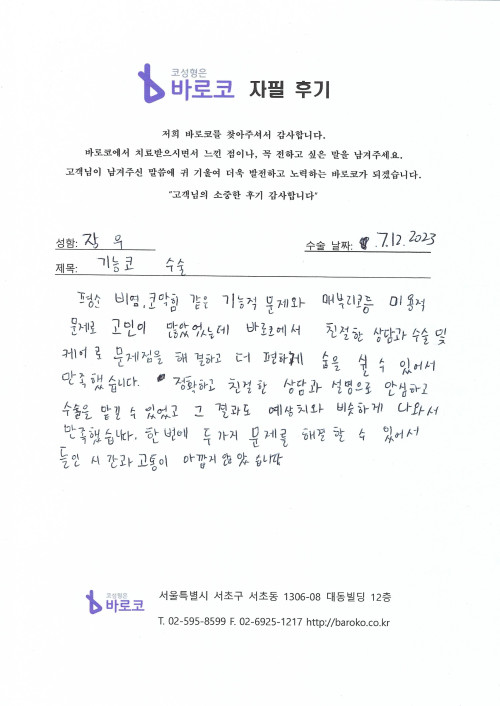 코성형은
바로코 자필 후기
저희 바로코를 찾아주셔서 감사합니다.
바로코에서 치료받으시면서 느낀 점이나, 꼭 전하고 싶은 말을 남겨주세요.
고객님이 남겨주신 말씀에 귀 기울여 더욱 발전하고 노력하는 바로코가 되겠습니다.
"고객님의 소중한 후기 감사합니다"
성함: 장 우 수술 날짜: 7.12.2023
제목: 기능코 수술
평소 비염, 코막힘 같은 기능적 문제와 매부리코등 미용적
문제로 고민이 많았었는데 바로코에서 친절한 상담과 수술 및
케어로 문제점을 해결하고 더 편하게 숨을 쉴 수 있어서
만족했습니다. 정확하고 친절한 상담과 설명으로 안심하고
수술을 맡길 수 있었고 그 결과도 예상치와 비슷하게 나와서
만족했습니다. 한번에 두가지 문제를 해결 할 수 있어서
들인 시간과 고통이 아깝지 않았습니다
코성형은
바로코
서울특별시 서초구 서초동 1306-08 대동빌딩 12층
T. 02-595-8599 F. 02-6925-1217 http://baroko.co.kr